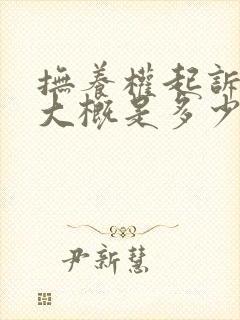 撫養權起訴
大概是多少
尹新慧